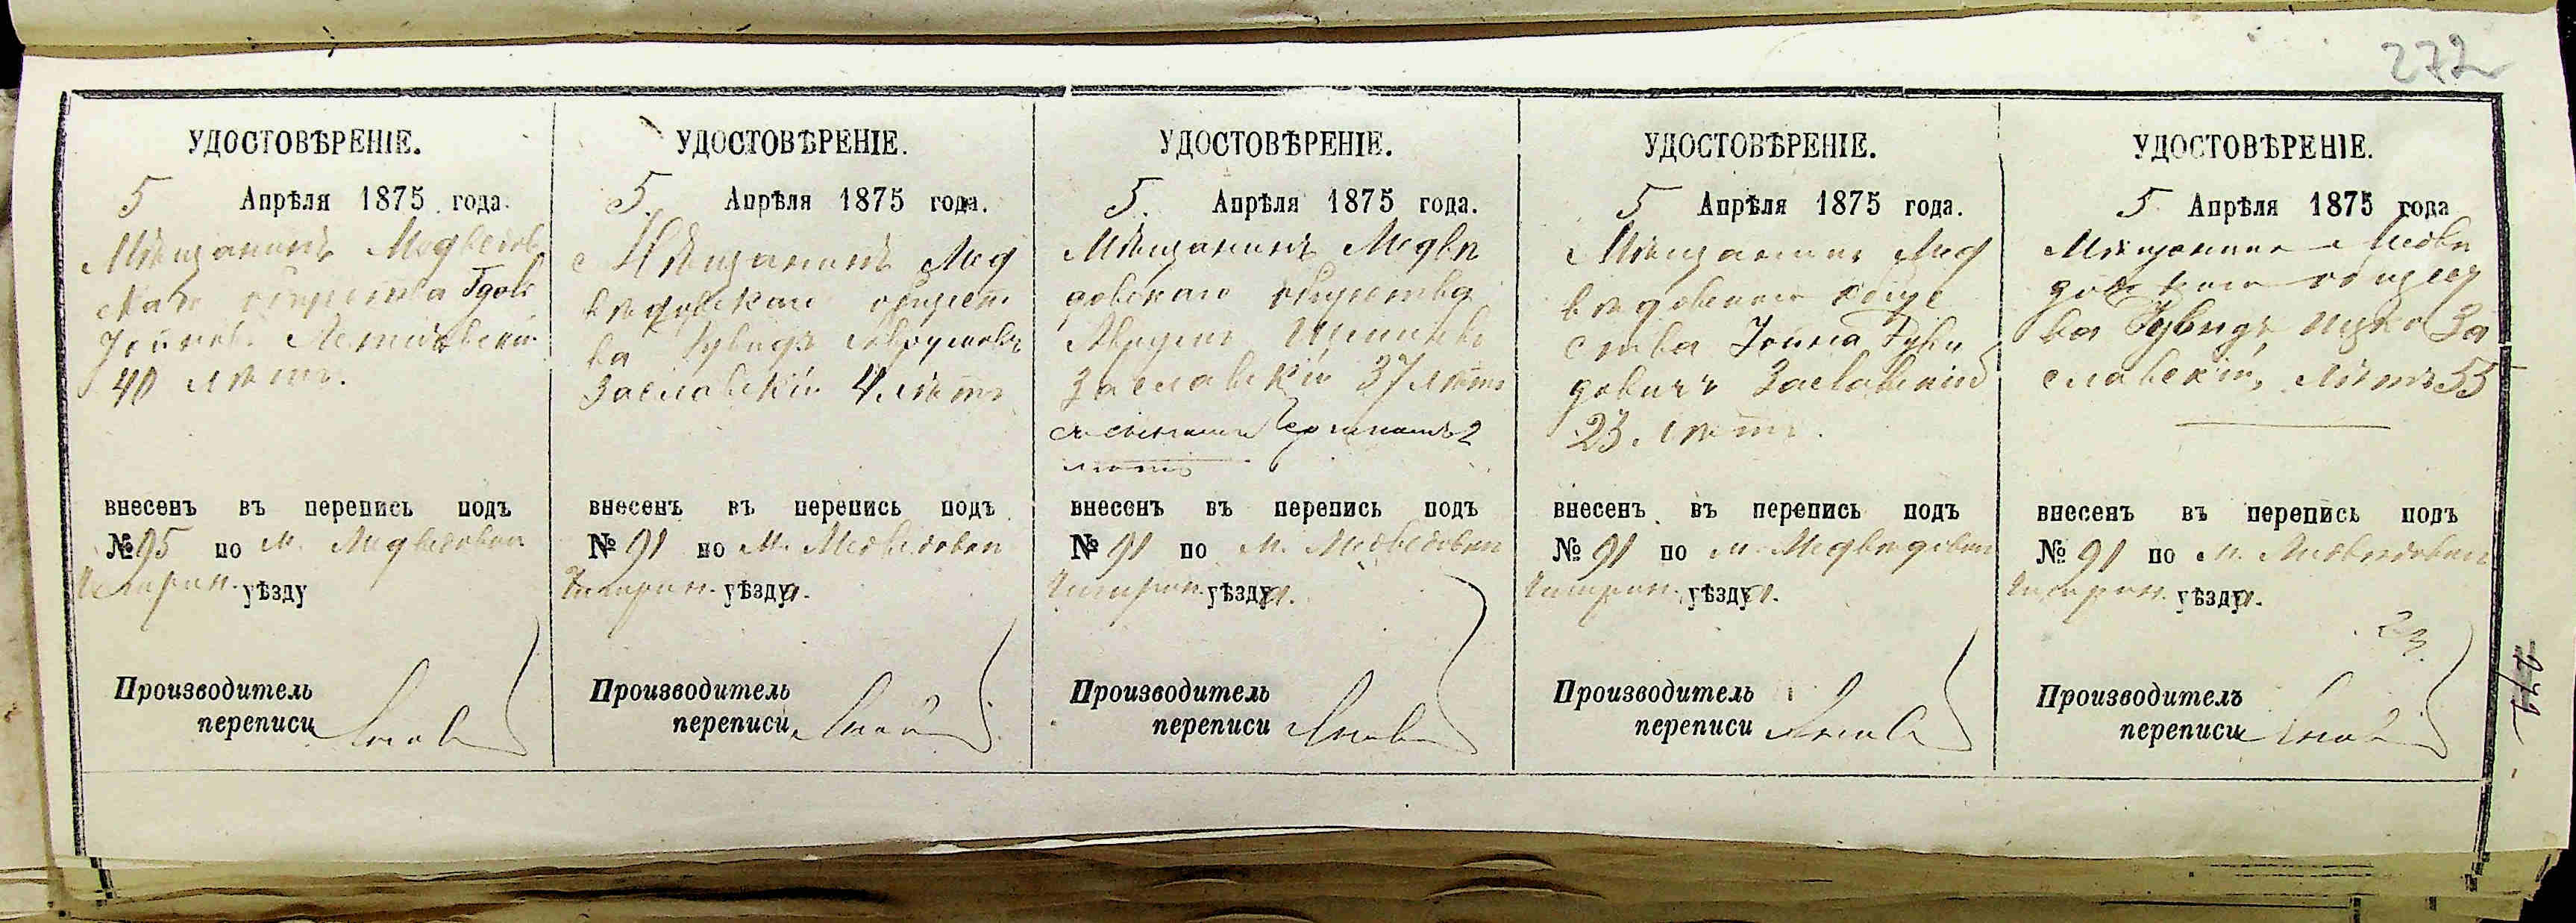 272
УДОСТОВѢРЕНІЕ.
5 Апрѣля 1875 года.
Мѣщанинъ Медведов
скаго общества
40 лѣтъ.
внесенъ въ перепись подъ
№ 95 по м. Медведовки
Чигирин. уѣзду
Производитель
переписи
УДОСТОВѢРЕНІЕ.
5. Апрѣля 1875 года.
Мѣщанинъ Мед
вѣдовскаго общест
ва Рувидъ Аврумовъ
Заславскій 4 лѣтъ
внесенъ въ перепись подъ
№ 91 по м. Медведовки
Чигирин. уѣзда.
Производитель
переписи
УДОСТОВѢРЕНІЕ.
5. Апрѣля 1875 года.
Мѣщанинъ Медвѣ
довскаго общества
Аврумъ
Заславскій 37 лѣтъ
съ сыномъ 2
лѣтъ
внесенъ въ перепись подъ
№ 91 по м. Медведовки
Чигирин. уѣзда.
Производитель
переписи
УДОСТОВѢРЕНІЕ.
5 Апрѣля 1875 года.
Мѣщанинъ Мед
вѣдовскаго обще
ства Іойна Руви
довичъ Заславскій
23 лѣтъ.
внесенъ въ перепись подъ
№ 91 по м. Медвѣдовки
Чигирин. уѣзда.
Производитель
переписи
УДОСТОВѢРЕНІЕ.
5 Апрѣля 1875 года
Мѣщанинъ Медвѣ
довскаго общест
ва Рувидъ Ицко За
славскій, лѣтъ 55
внесенъ въ перепись подъ
№ 91 по м. Медвѣдовки
Чигирин. уѣзда.
23
Производитель
переписи